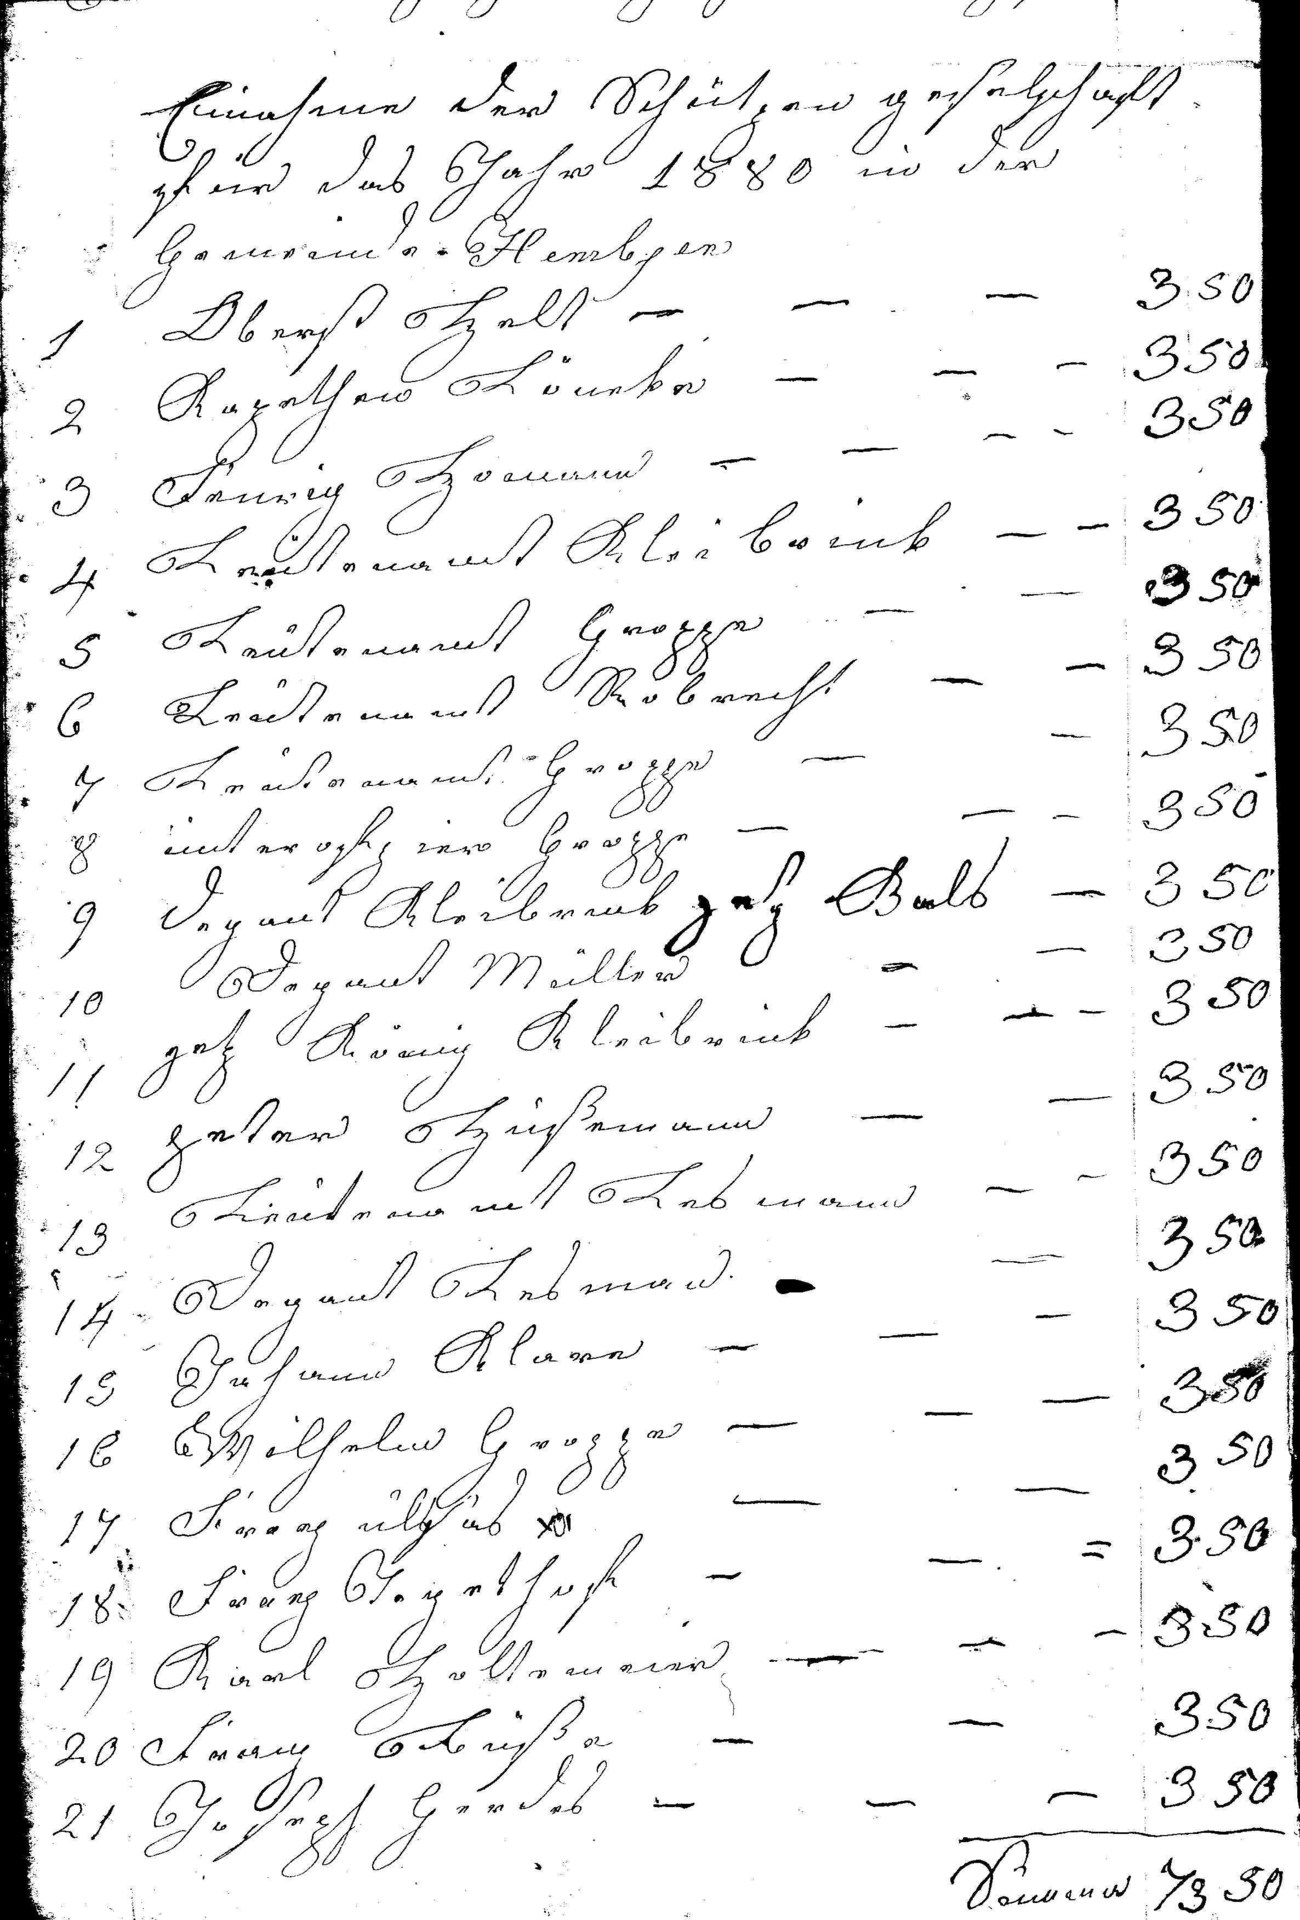 Einnahme der Schützen geselschaft
für das Jahr 1880 in der
Gemeinde Hembsen
1 Oberst Helt — — — 3 50
2 Kapethen Köneke — — — 3 50
3 Fenrig Homann — — — — 3 50
4 Leutenamt Kleibrink — — 3 50
5 Leutenamt Groppe — — 3 50
6 Leutenamt Robrecht — — 3 50
7 Leutenamt Groppe — — 3 50
8 unterofizier Groppe — — — 3 50
9 Depant Kleibrink jetz Bals — 3 50
10 Depant Müller — — 3 50
11 jetz König Kleibrink — — — 3 50
12 peter Hüßemann — — 3 50
13 Leutenamt Lesmann — — 3 50
14 Depant Lesman — — 3 50
15 Johann Klare — — — 3 50
16 Wilhelm Groppe — — — 3 50
17 Franz — — 3 50
18 Franz Tepethof — — = 3 50
19 Karl Holtemeier — — — 3 50
20 Franz Büße — — 3 50
21 Joseph Gerdes — — — 3 50
Summa 73 50